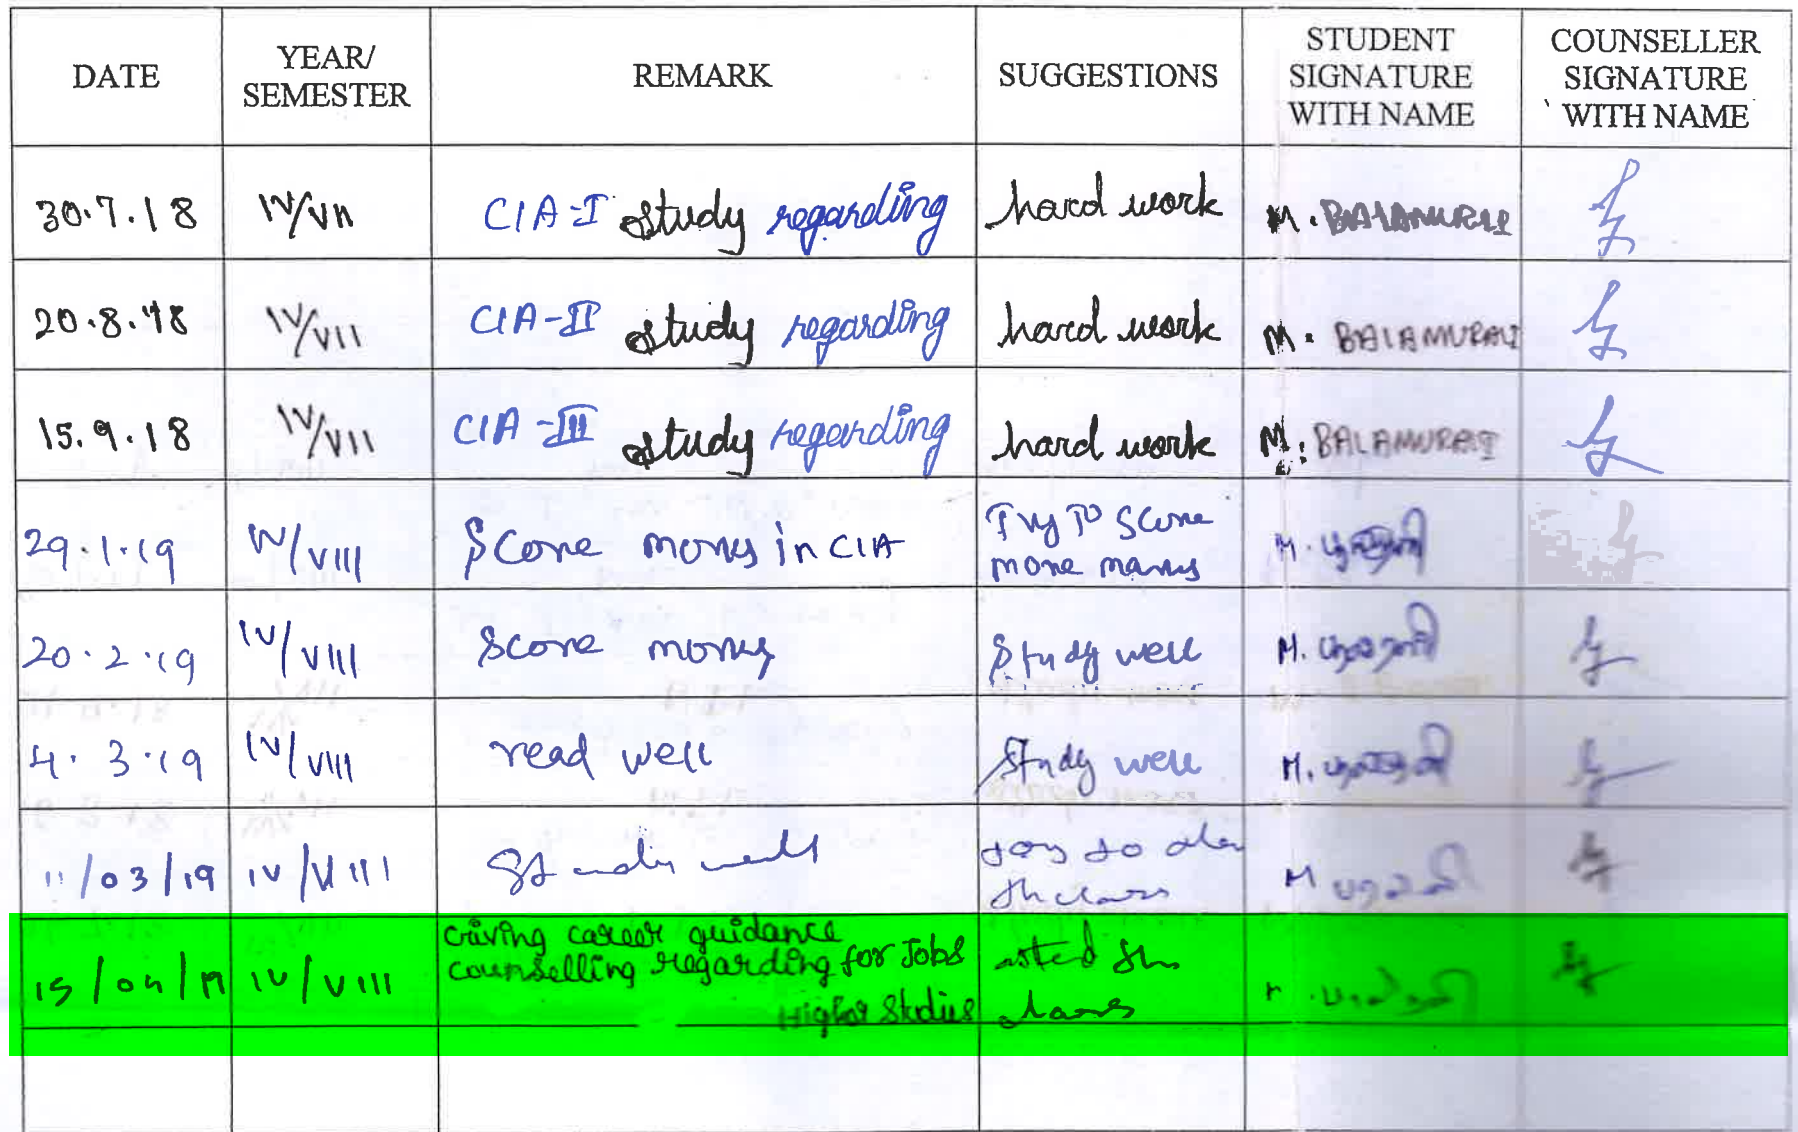 DATE YEAR/ SEMESTER REMARK SUGGESTIONS STUDENT SIGNATURE WITH NAME COUNSELLER SIGNATURE WITH NAME
30.7.18 IV/VII CIA-I study regarding hard work M. BALAMURALI
20.8.18 IV/VII CIA-II study regarding hard work M. BALAMURALI
15.9.18 IV/VII CIA-III study regarding hard work M. BALAMURALI
29.1.19 IV/VIII Score marks in CIA Try To Score
more marks M.
20.2.19 IV/VIII Score marks Study well M.
4.3.19 IV/VIII read well Study well M.
11/03/19 IV/VIII Study well M
15/04/19 IV/VIII Giving career guidance
counselling regarding for Jobs
Higher Studies